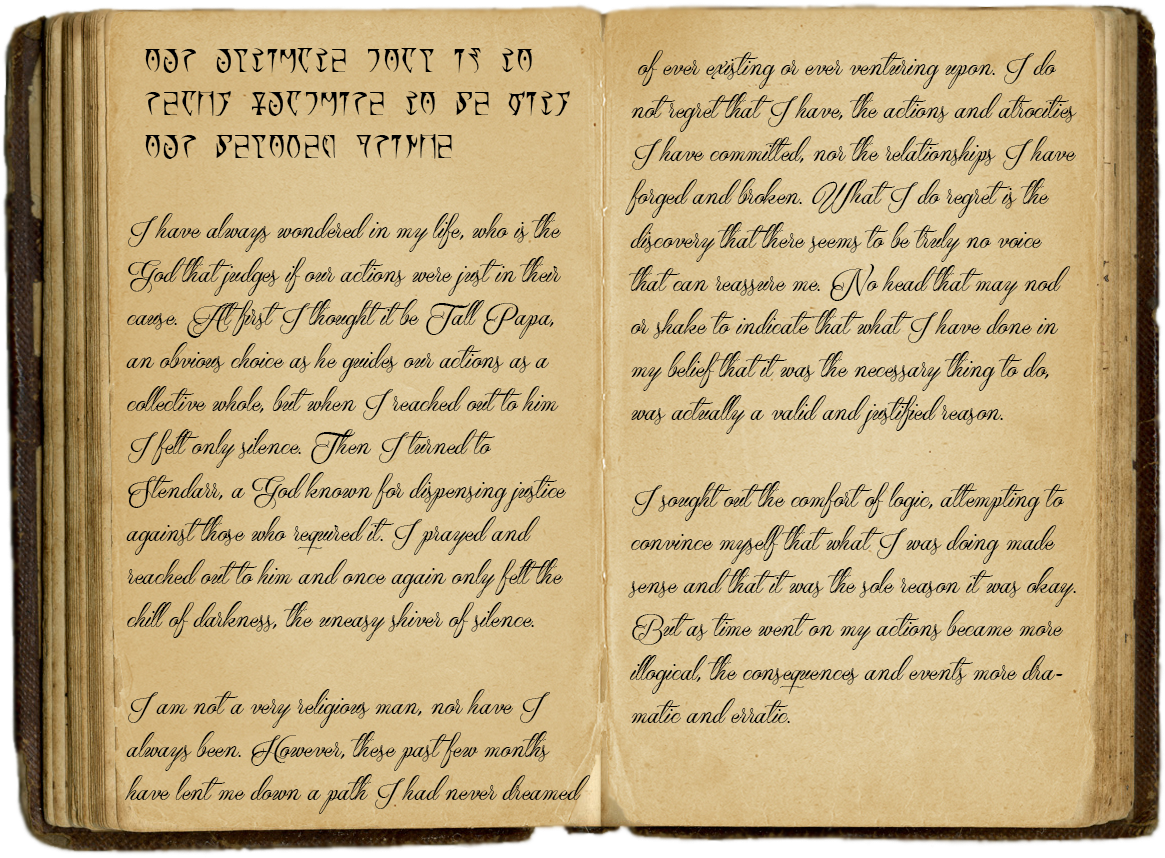 I have always wondered in my life, who is the
God that judges if our actions were just in their
cause. At first I thought it be Tall Papa,
an obvious choice as he guides our actions as a
collective whole, but when I reached out to him
I felt only silence. Then I turned to
Stendarr, a God known for dispensing justice
against those who required it. I prayed and
reached out to him and once again only felt the
chill of darkness, the uneasy shiver of silence.
I am not a very religious man, nor have I
always been. However, these past few months
have lent me down a path I had never dreamed
of ever existing or ever venturing upon. I do
not regret that I have, the actions and atrocities
I have committed, nor the relationships I have
forged and broken. What I do regret is the
discovery that there seems to be truly no voice
that can reassure me. No head that may nod
or shake to indicate that what I have done in
my belief that it was the necessary thing to do,
was actually a valid and justified reason.
I sought out the comfort of logic, attempting to
convince myself that what I was doing made
sense and that it was the sole reason it was okay.
But as time went on my actions became more
illogical, the consequences and events more dra-
matic and erratic.